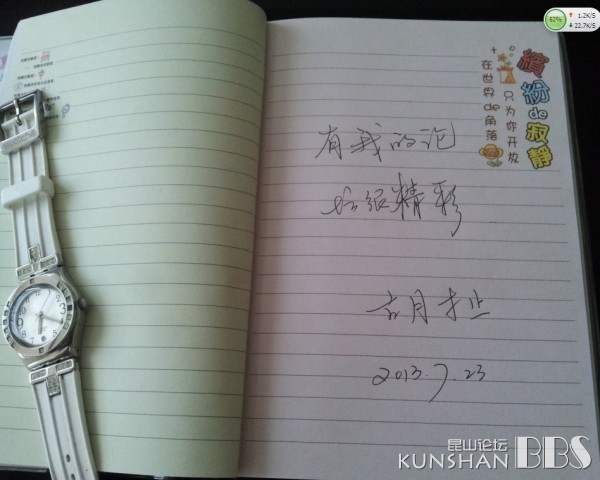 62%
1.2K/S
22.7K/S
缤纷de寂静
只为你开放
在世界de角落
有我的论
坛很精彩
2013.7.23
昆山论坛
KUNSHAN BBS